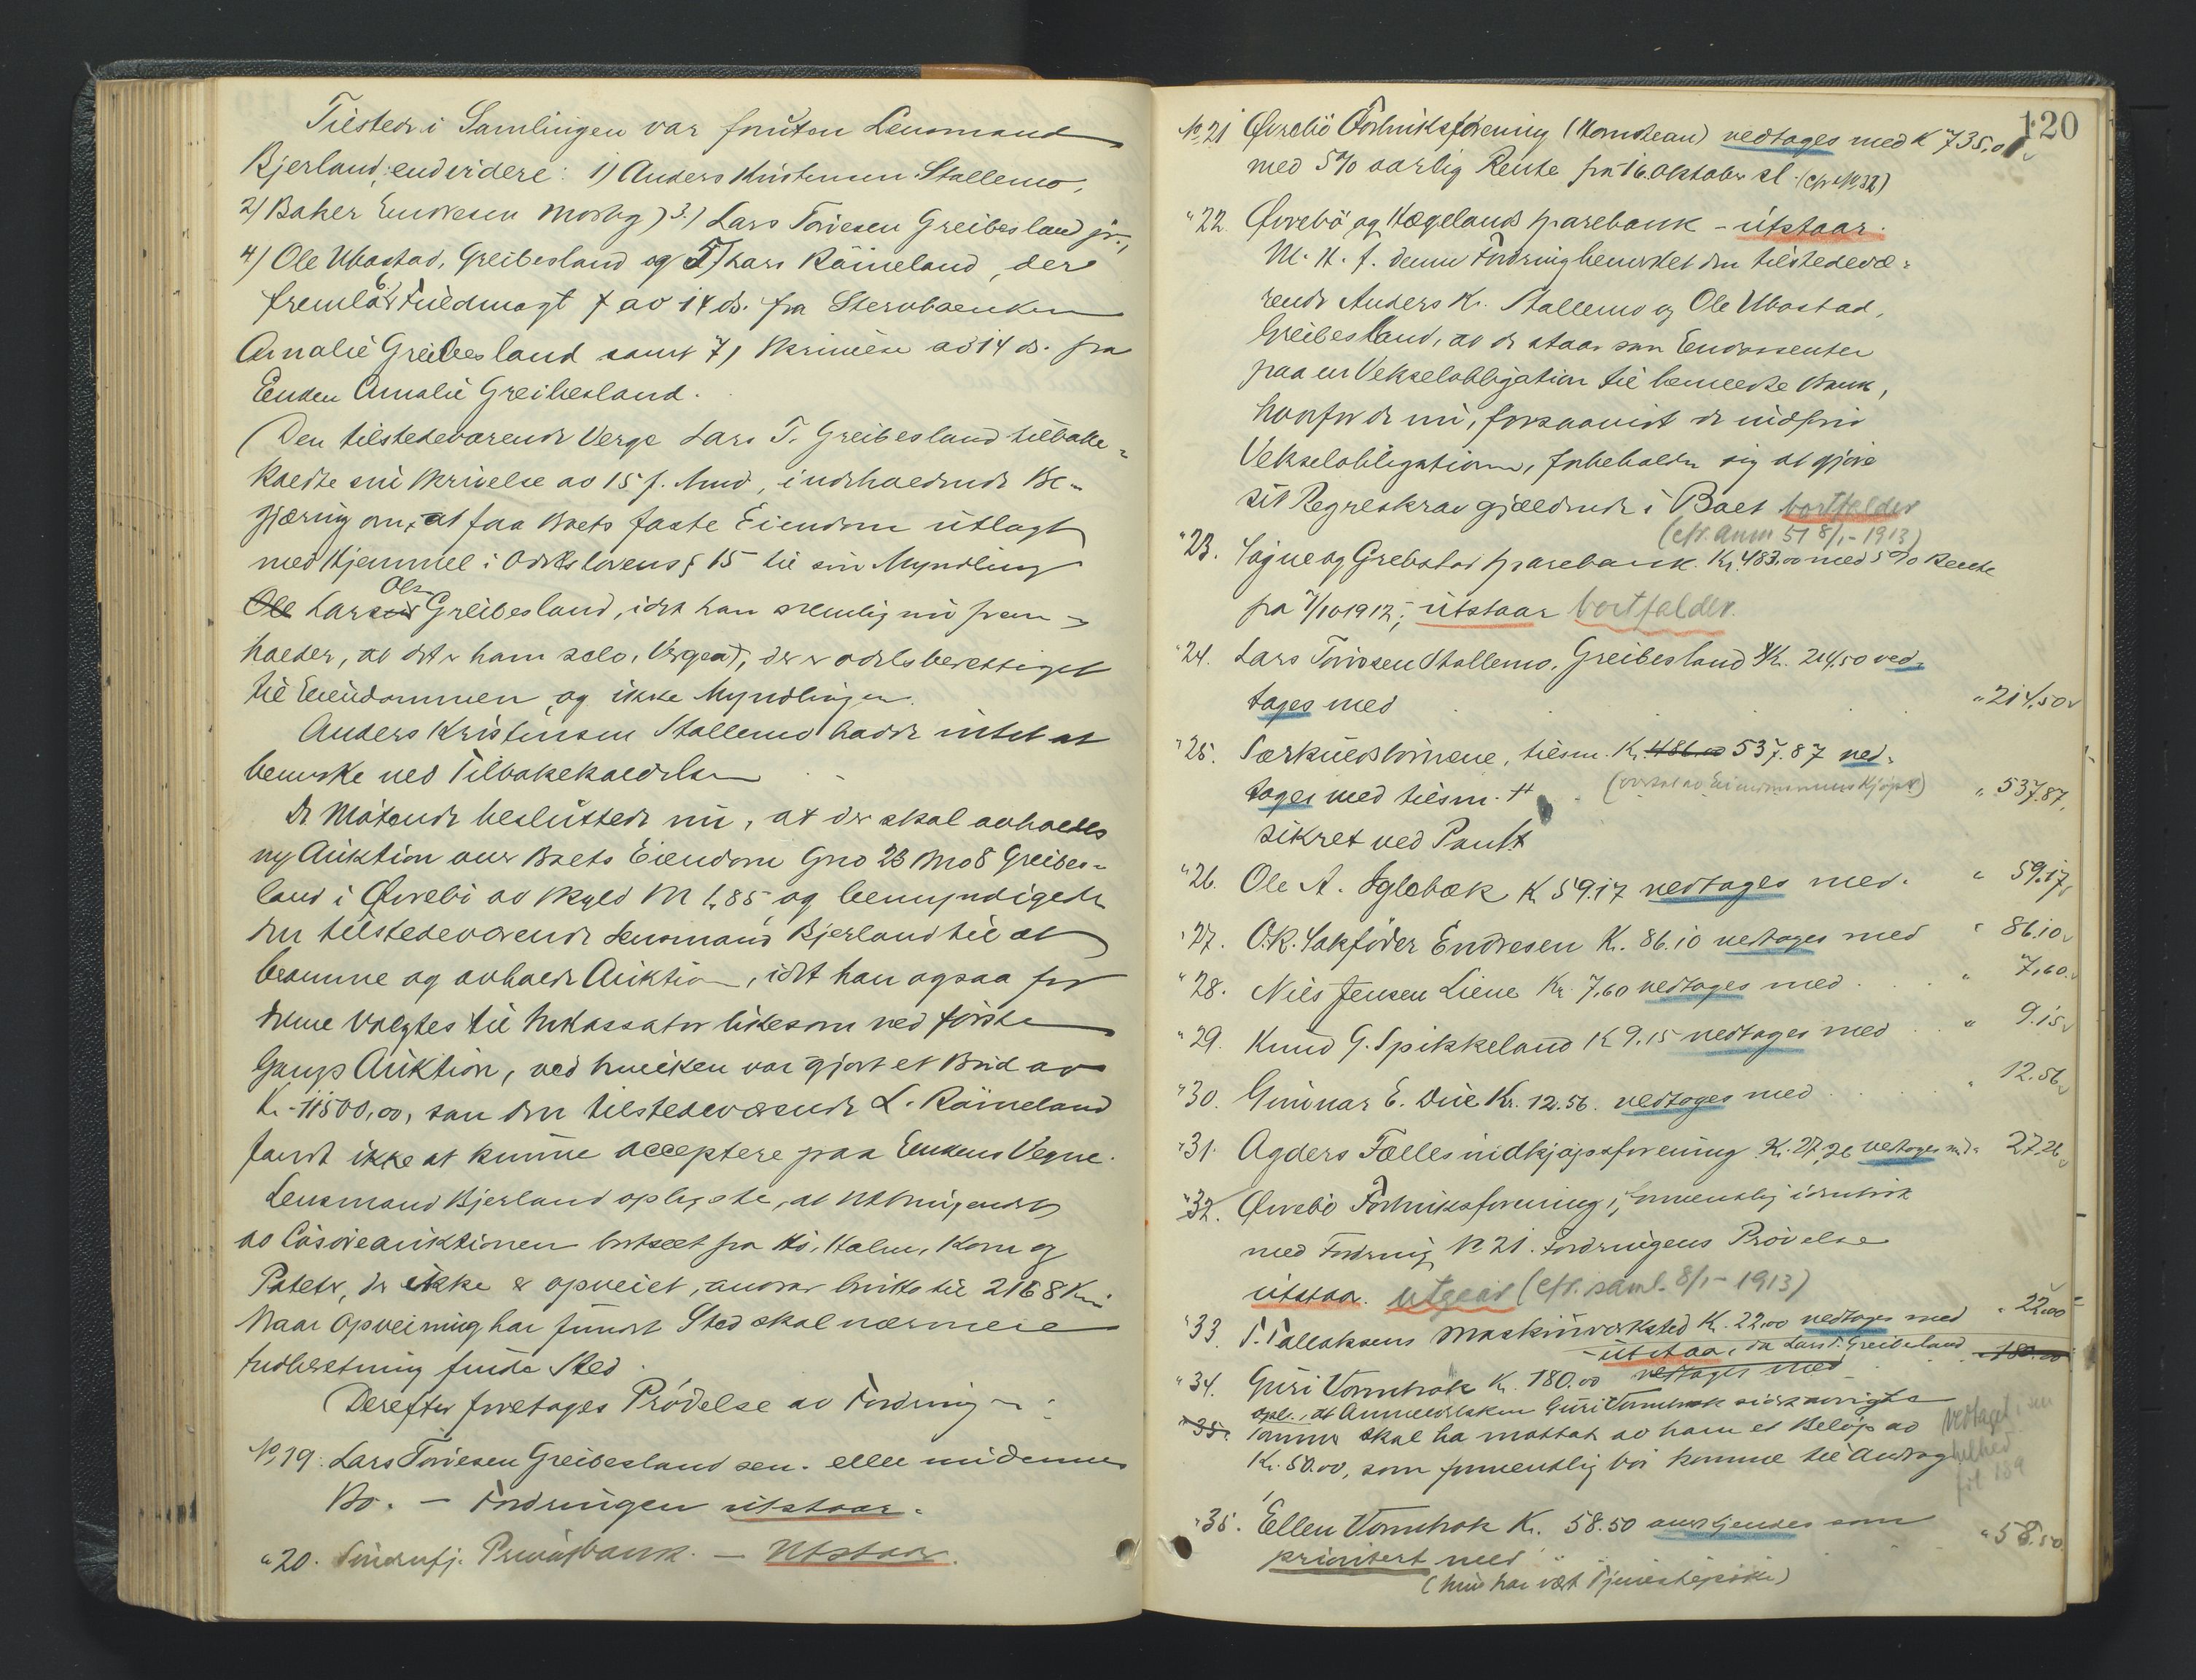 Tilstede i Samlingen var foruten Lensmand
Bjerland, endvidere: 1) Anders Kristensen Stallemo,
2) Baker Endresen Mosby, 3) Lars Torjesen Greibesland jr.,
4) Ole Ubostad, Greibesland og 5) Lars Råineland, der
fremla 6) Fuldmagt f av 14 ds. fra Stervboenken
Amalie Greibesland samt 7) Skrivelse av 14 ds. fra
Enken Amalie Greibesland.
(Den tilstedeværende Verge Lars T. Greibesland tilbake-
kaldte sin Skrivelse av 15 f. Md, indeholdende Be-
gjæring om, at faa Boets faste Eiendom utlagt
med Hjemmel i Odelslovens § 15 til sin Myndling
Ole Lars Ols. Greibesland, idet han nemlig nu frem-
holder, at det er ham selv, Vergen), der er odelsberettiget
til Eiendommen og ikke Myndlingen.
Anders Kristensen Stallemo hadde intet at
bemerke ved Tilbakekaldelsen
De Møtende besluttede nu, at der skal avholdes
ny Auktion over Boets Eiendom Gno 23 Bno 8 Greibes-
land i Øvrebö av Skyld M 1,85 og bemyndigede
den tilstedeværende Lensmand Bjerland til at
beramme og avholde Auktion, idet han ogsaa for
denne valgtes til Inkassator likesom ved første
Gangs Auktion, ved hvilken var gjort et Bud av
Kr. 11500,00, som den tilstedeværende L. Råineland
fandt ikke at kunne acceptere paa Enkens Vegne.
Lensmand Bjerland oplyste, at Utbringendet
av Løsøreauktionen bortset fra Hö, Halm, Korn og
Poteter, der ikke er opveiet, androg brutto til 2168 Kr.
Naar Opveining har fundet Sted skal nærmere
Indberetning finde Sted.
Derefter foretages Prøvelse av Fordringer:
No. 19. Lars Torjesen Greibesland sen. eller indennes
Bo. – Fordringen utstaar.
" 20. Søndenfj. Privatbank. – Utstaar.
120
No. 21 Øvrebö Forbruksforening (Homsteau) vedtages med K 735,0
med 5% aarlig Rente fra 16. Oktober d. (cfr No 32)
" 22. Øvrebö og Hægelands Sparebank – utstaar.
M. H. t. denne Fordring bemerket den tilstedevæ-
rende Anders Kr. Stallemo og Ole Ubostad,
Greibesland, at de staar som Endossenter
paa en Vekselobligation til bemeldte Bank,
hvorfor de nu, forsaavidt de indfrir
Vekselobligationen, forbeholder sig at gjøre
sit Regreskrav gjældende i Boet bortfalder
(cfr. anm 51 8/1-1913)
" 23. Søgne og Grebstad Sparebank. Kr. 483.00 med 5% Rente
fra 7/10 1912; utstaar bortfalder.
" 24. Lars Torjesen Stallemo, Greibesland Kr. 214,50 ved-
tages med " 214,50
" 25. Særkuldsbørnene, tilsm. Kr. 486.00 537.87 ved-
tages med tilsm. Kr (overtat av Eiendommens Kjøper) " 537.87
sikret ved Pant
" 26. Ole A. Iglebæk K 59.17 vedtages med. " 59.17
" 27. O.R. Sakfører Endresen K. 86.10 vedtages med " 86.10
" 28. Nils Jensen Liene Kr. 7,60 vedtages med " 7,60
" 29. Knud G. Spikkeland K 9.15 vedtages med " 9.15
" 30. Gunnar E. Due Kr. 12.56. vedtages med " 12.56
" 31. Agders Fællesindkjøpsforening. K. 27,26 vedtages md. 27,26
" 32. Øvrebö Forbruksforening, formentlig identisk
med Fordring No 21. Fordringens Prøvelse
utstaar. utgaar (cfr. saml. 8/1-1913)
" 33. T. Tallaksens Maskinverksted K. 22.00 vedtages med " 22.00
– utstaar, da Lars T. Greibesland
" 34. Guri Vomhok K. 180.00 vedtages med 180.00
opl., at Anmelderken Guri Vomhok sidstavvigte
" 35. Sommer skal ha mottat av ham et Beløp av
Kr. 50.00, som formentlig bør komme til Avdrag
Vedtaget i sin
helhed
fol 139
" 35. Ellen Vomhok Kr. 58.50 anerkjendes som
prioritert med " 58.50
(hun har vært Tjenestepike)